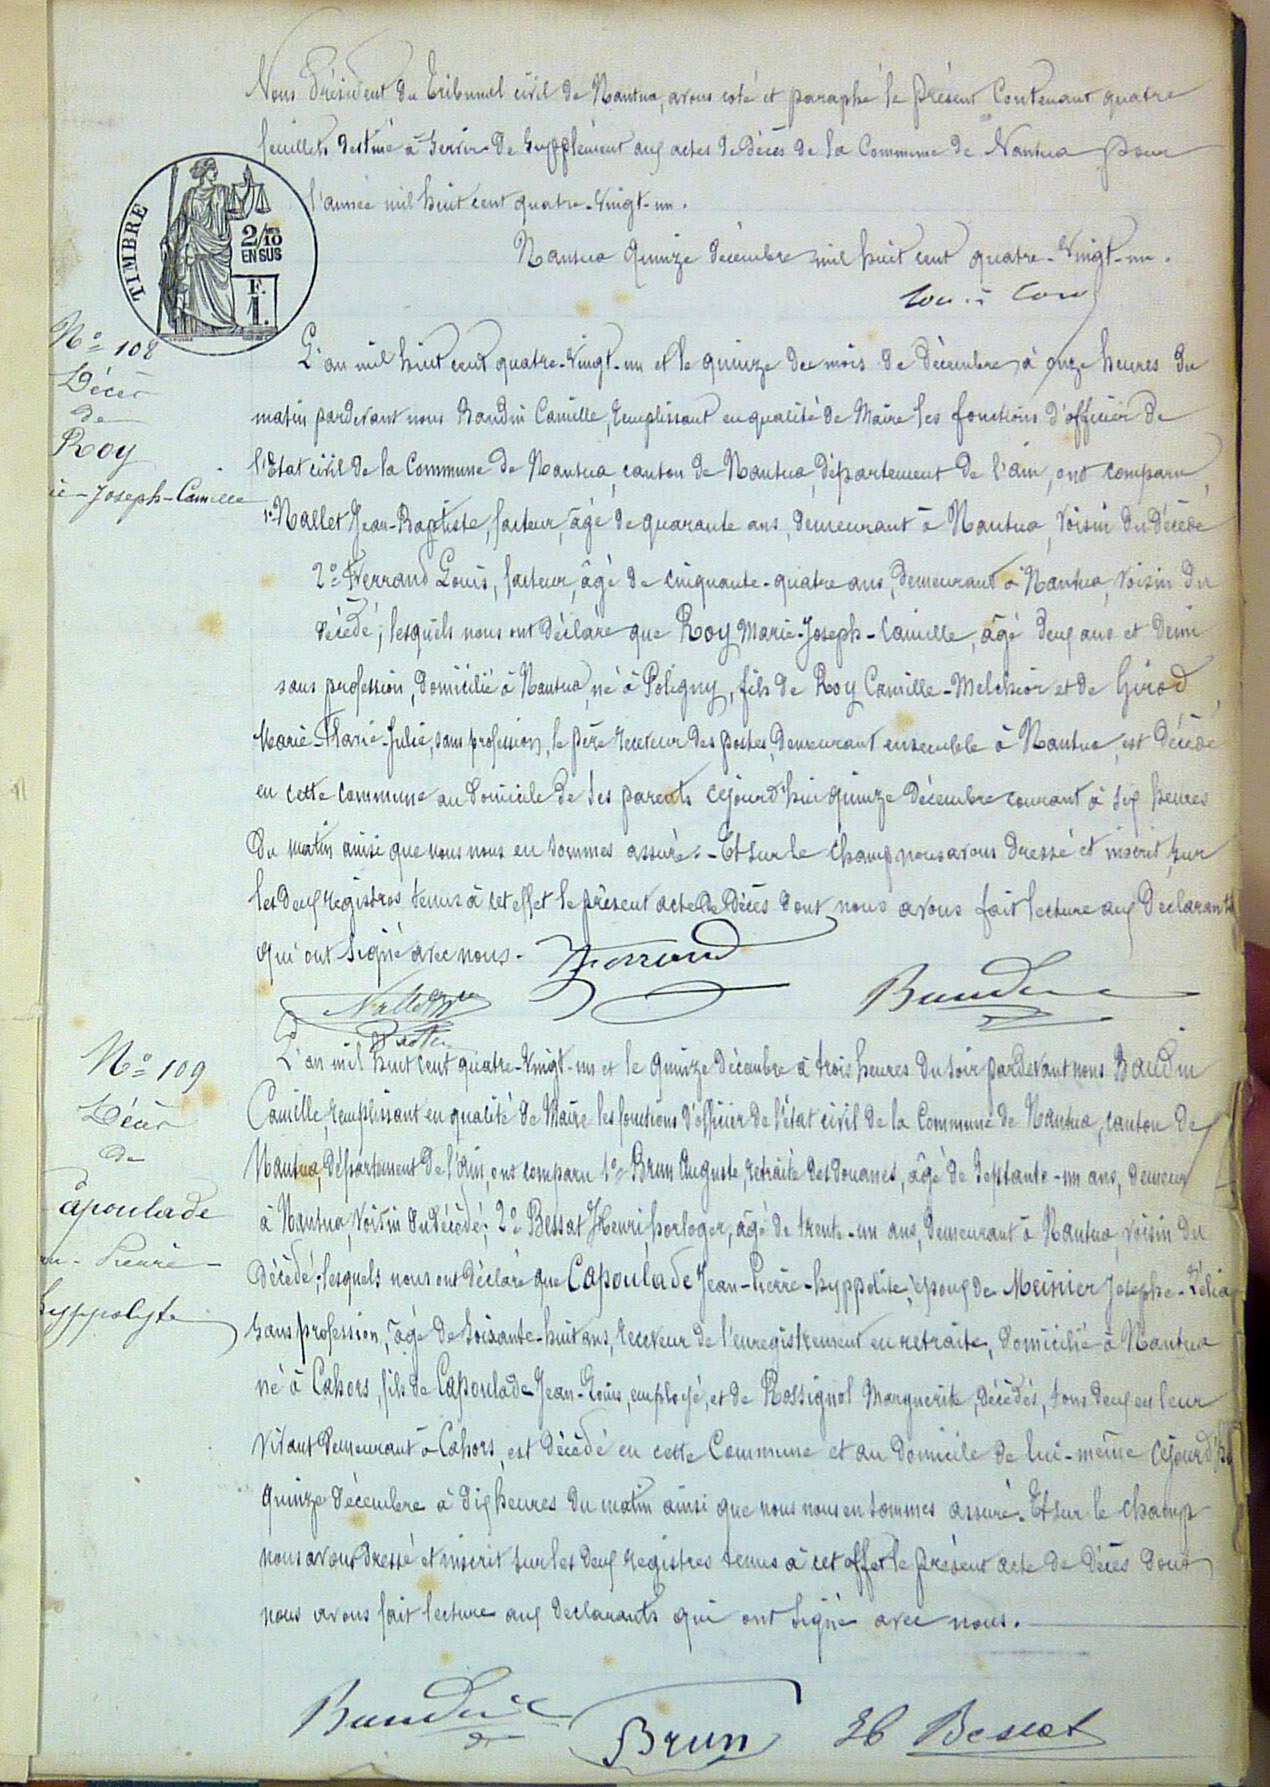 Nous Président du Tribunal civil de Nantua, avons coté et paraphé le présent contenant quatre
feuillets destiné à servir de supplément aux actes de décès de la Commune de Nantua pour
l'année mil huit cent quatre-vingt-un.
Nantua quinze décembre mil huit cent quatre-vingt-un.
TIMBRE
2/10
EN SUS
F.
1.
N° 108
Décès
de
Roy
ie-Joseph-Camille
L'an mil huit cent quatre-vingt-un et le quinze du mois de décembre à onze heures du
matin pardevant nous Baudin Camille, remplissant en qualité de Maire les fonctions d'officier de
l'Etat civil de la Commune de Nantua, canton de Nantua, département de l'ain, ont comparu
1° Nallet Jean-Baptiste, facteur, âgé de quarante ans, demeurant à Nantua, voisin du décédé
2° Ferrand Louis, facteur, âgé de cinquante-quatre ans, demeurant à Nantua, voisin du
décédé; lesquels nous ont déclaré que Roy Marie-Joseph-Camille, âgé deux ans et demi
sans profession, domicilié à Nantua, né à Poligny, fils de Roy Camille-Melchior et de Girod
Marie-Julie, sans profession, le père receveur des postes, demeurant ensemble à Nantua, est décédé
en cette commune au domicile de ses parents cejourd'hui quinze décembre courant à six heures
du matin ainsi que nous nous en sommes assuré. - Et sur le champ nous avons dressé et inscrit sur
les deux registres tenus à cet effet le présent acte de décès dont nous avons fait lecture aux déclarants
qui ont signé avec nous.
Ferrand
Nallet
Baudin
N° 109
Décès
de
apoulade
n-Pierre-
hyppolyte
L'an mil huit cent quatre-vingt-un et le quinze décembre à trois heures du soir pardevant nous Baudin
Camille, remplissant en qualité de Maire les fonctions d'officier de l'état civil de la Commune de Nantua, canton de
Nantua, département de l'ain, ont comparu 1° Brun Auguste, retraité des douanes, âgé de septante-un ans, demeur
à Nantua, voisin du décédé; 2° Bessat Henri horloger, âgé de trente-un ans, demeurant à Nantua, voisin du
décédé; lesquels nous ont déclaré que Capoulade Jean-Pierre-hyppolite, époux de Meinier Josephe-Zélia
sans profession, âgé de soixante-huit ans, receveur de l'enregistrement en retraite, domicilié à Nantua
né à Cahors, fils de Capoulade Jean-Louis, employé, et de Rossignol Marguerite, décédés, tous deux en leur
vivant demeurant à Cahors, est décédé en cette Commune et au domicile de lui-même cejourd'hu
quinze décembre à dix heures du matin ainsi que nous nous en sommes assuré. Et sur le champ
nous avons dressé et inscrit sur les deux registres tenus à cet effet le présent acte de décès dont
nous avons fait lecture aux déclarants qui ont signé avec nous.
Baudin
Brun
H Bessat